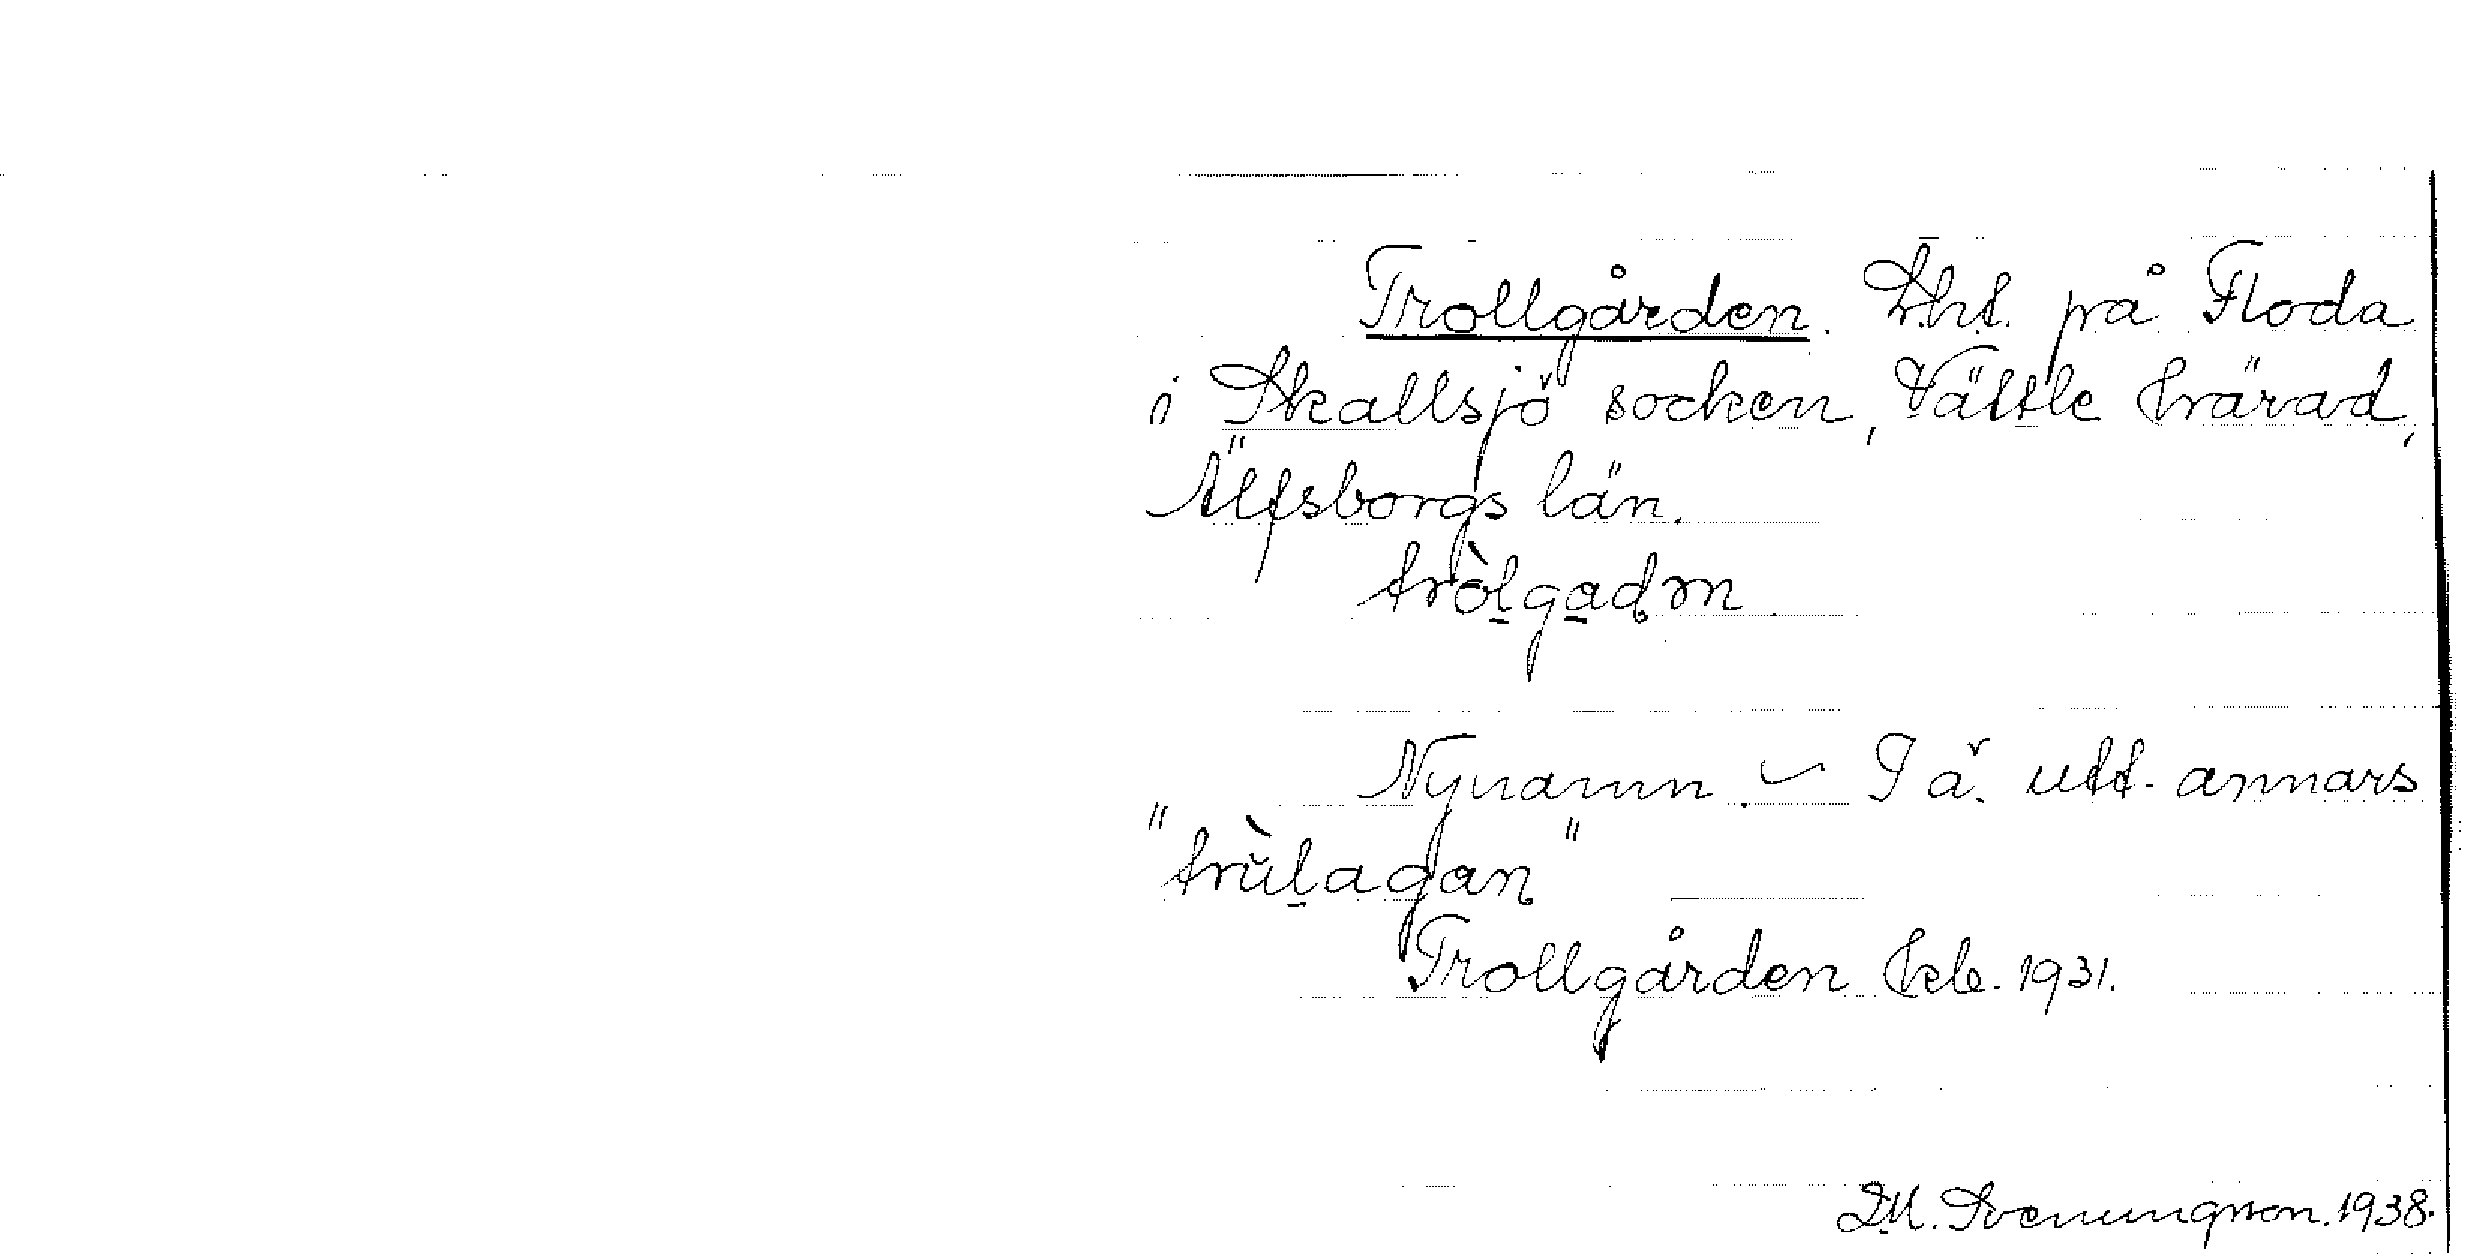 Trollgården. Lht. på Floda
i Skallsjö socken, Vättle härad,
Älfsborgs län.
tròlgadən
Nynamn. – I ä. utt. annars
"trùlagan"
Trollgården Ekk. 1931.
D.M. Svenungsson. 1938.